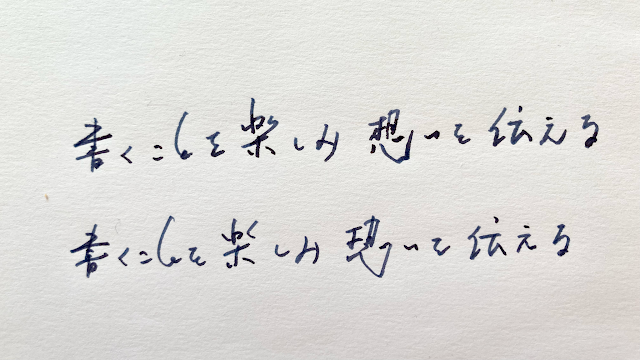 書くことを楽しみ想いを伝える
書くことを楽しみ想いを伝える